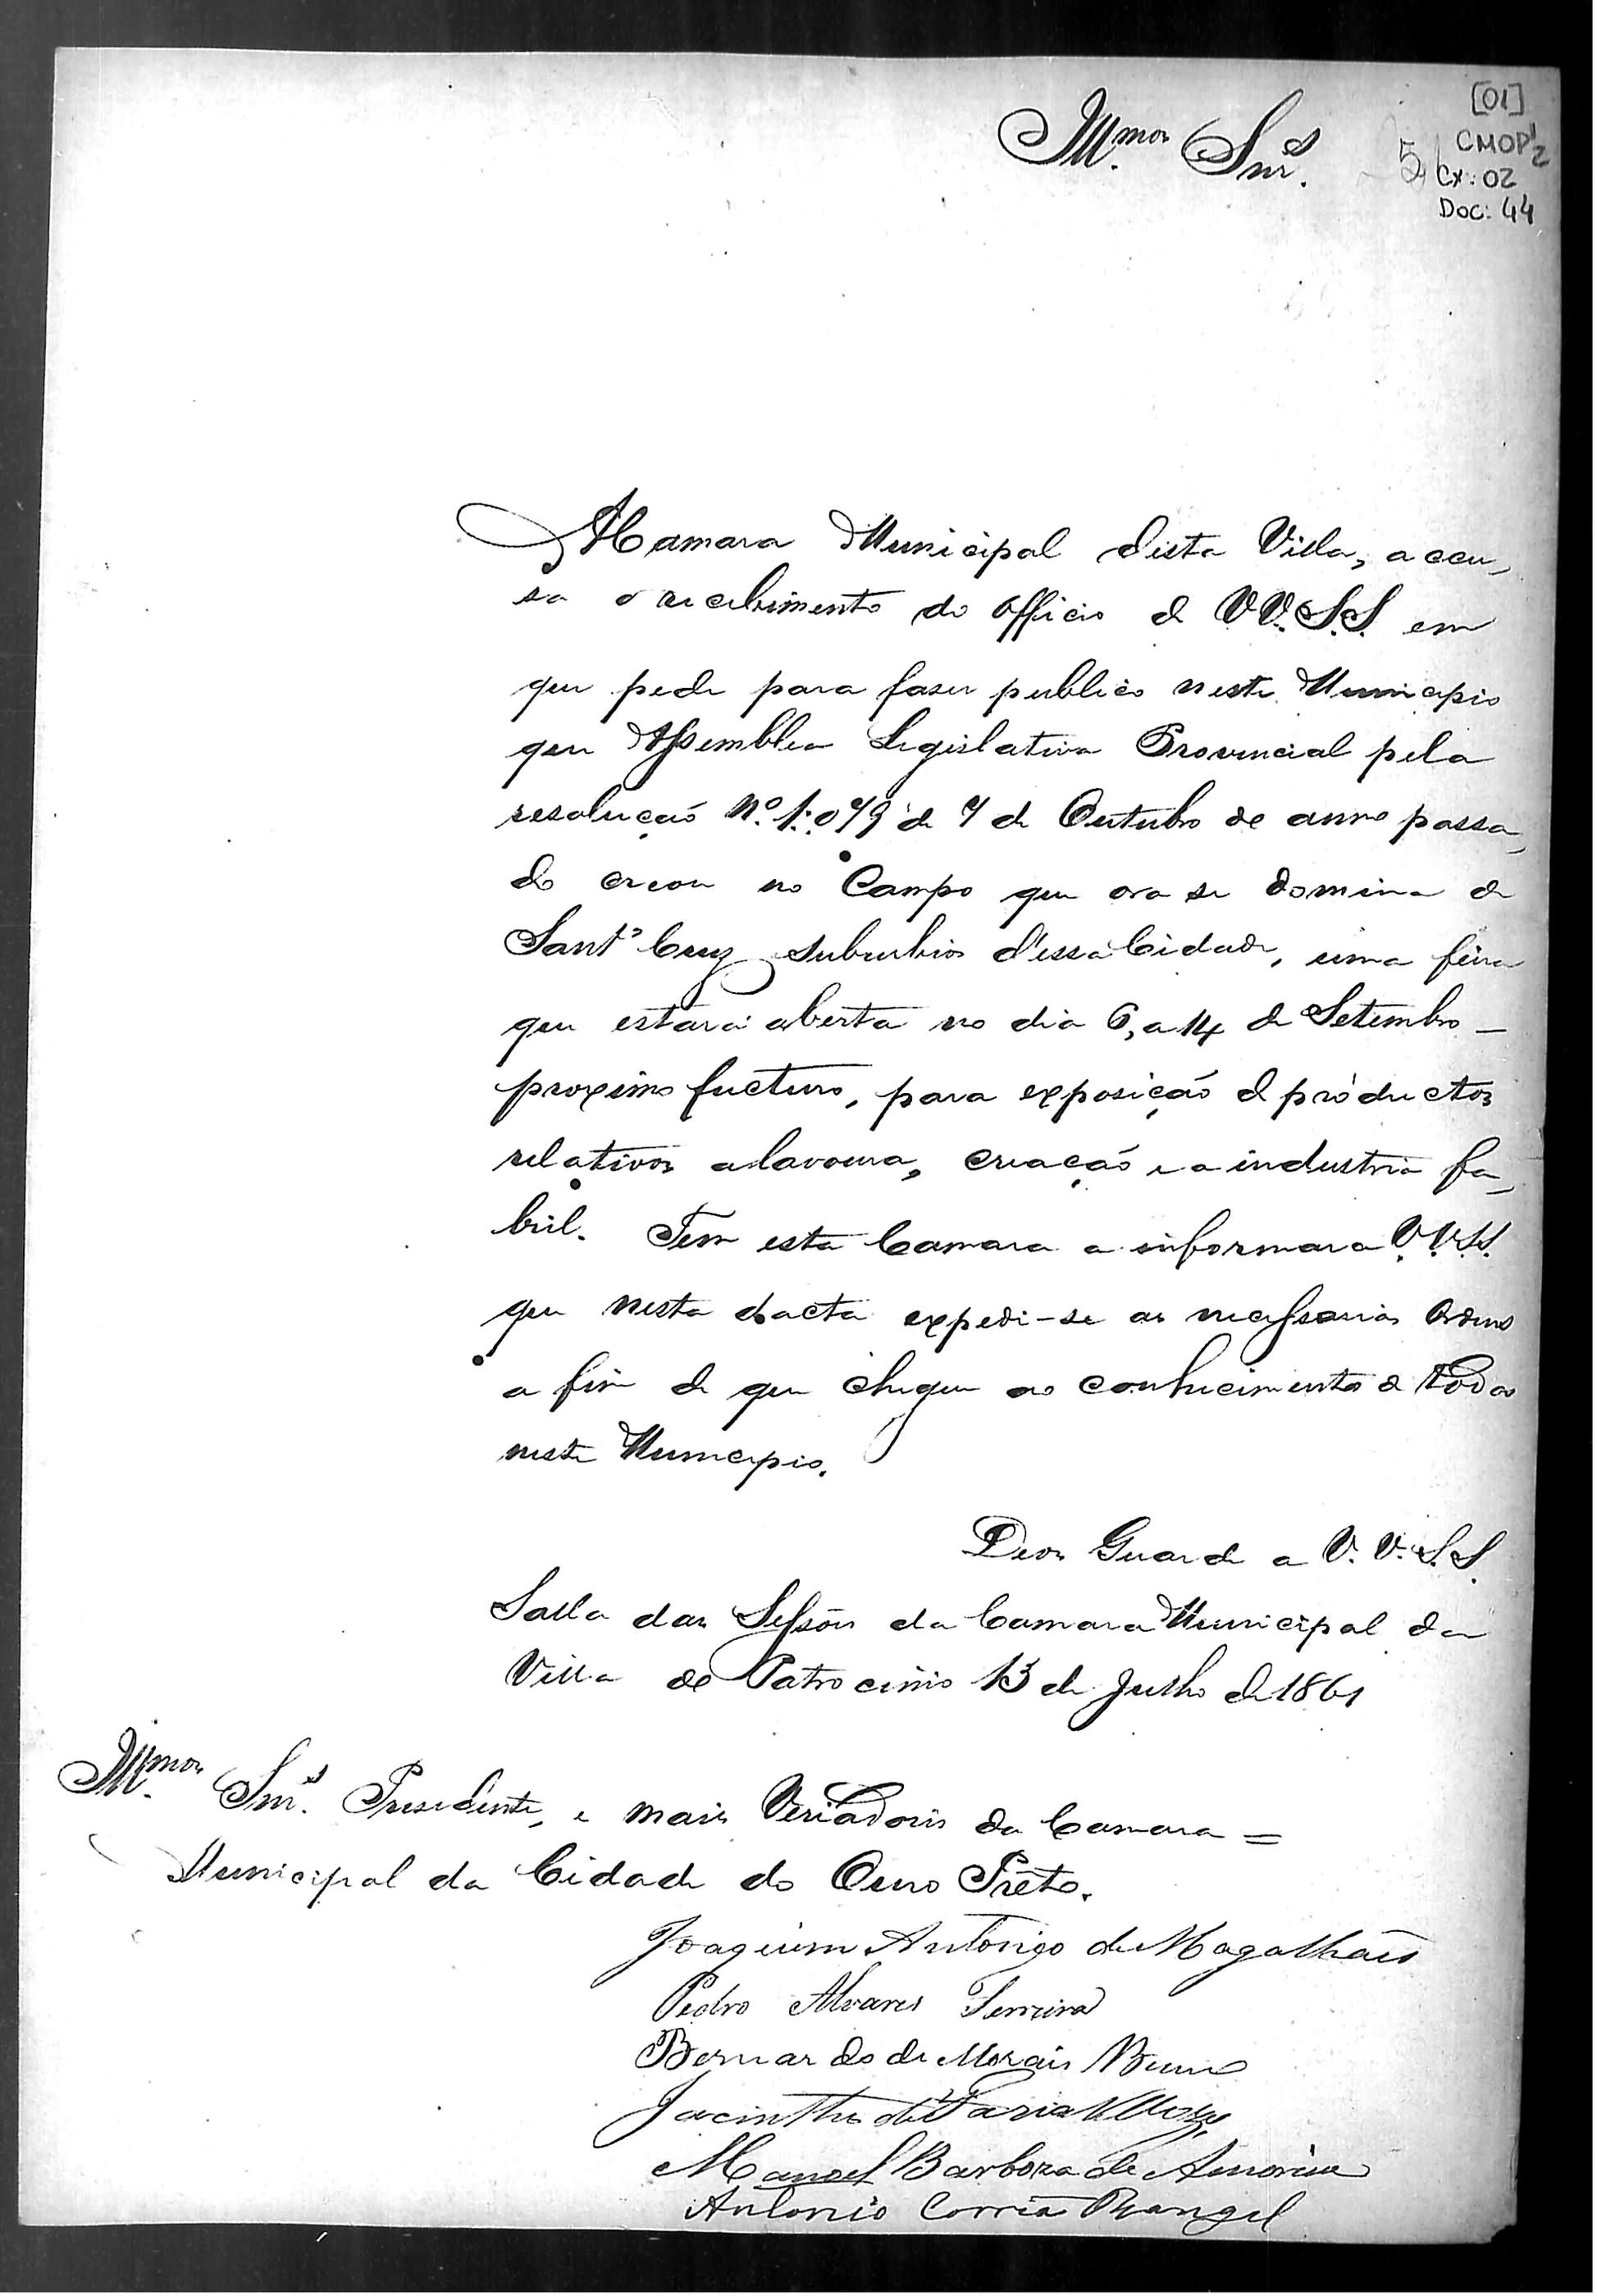 Ill.mos Snr.s
[01]
CMOP 2
Cx: 02
Doc: 44
A Camara Municipal desta Villa, accu-
sa o recebimento do officio de VV. S.S. em
que pede para faser publico neste Municipio
que Assemblea Legislativa Provincial pela
resolução Nº. 1:079 de 7 de Outubro de anno passa-
do creou no Campo que ora se domina de
Sant.ª Cruz suburbios d'essa Cidade, uma feira
que estará aberta no dia 6, a 14 de Setembro -
proximo fucturo, para exposição de productos
relativos a lavoura, creação e a industria fa-
bril. Tem esta Camara a informar a V.V.S.S.
que nesta dacta expedi-se as necessarias Ordens
a fim de que chegue ao conhecimento de todos
neste Municipio.
Deos Guarde a V. V. S. S.
Salla das Sessões da Camara Municipal da
Villa do Patrocinio 13 de Julho de 1861
Ill.mos Snr.s Presidente, e mais Veriadores da Camara =
Municipal da Cidade do Ouro Preto.
Joaquim Antonio de Magalhães
Pedro Alvares Ferreira
Bernardo de Morais Bueno
Jacintho de Faria
Manoel Barboza de Amorim
Antonio Corrêa Rangel